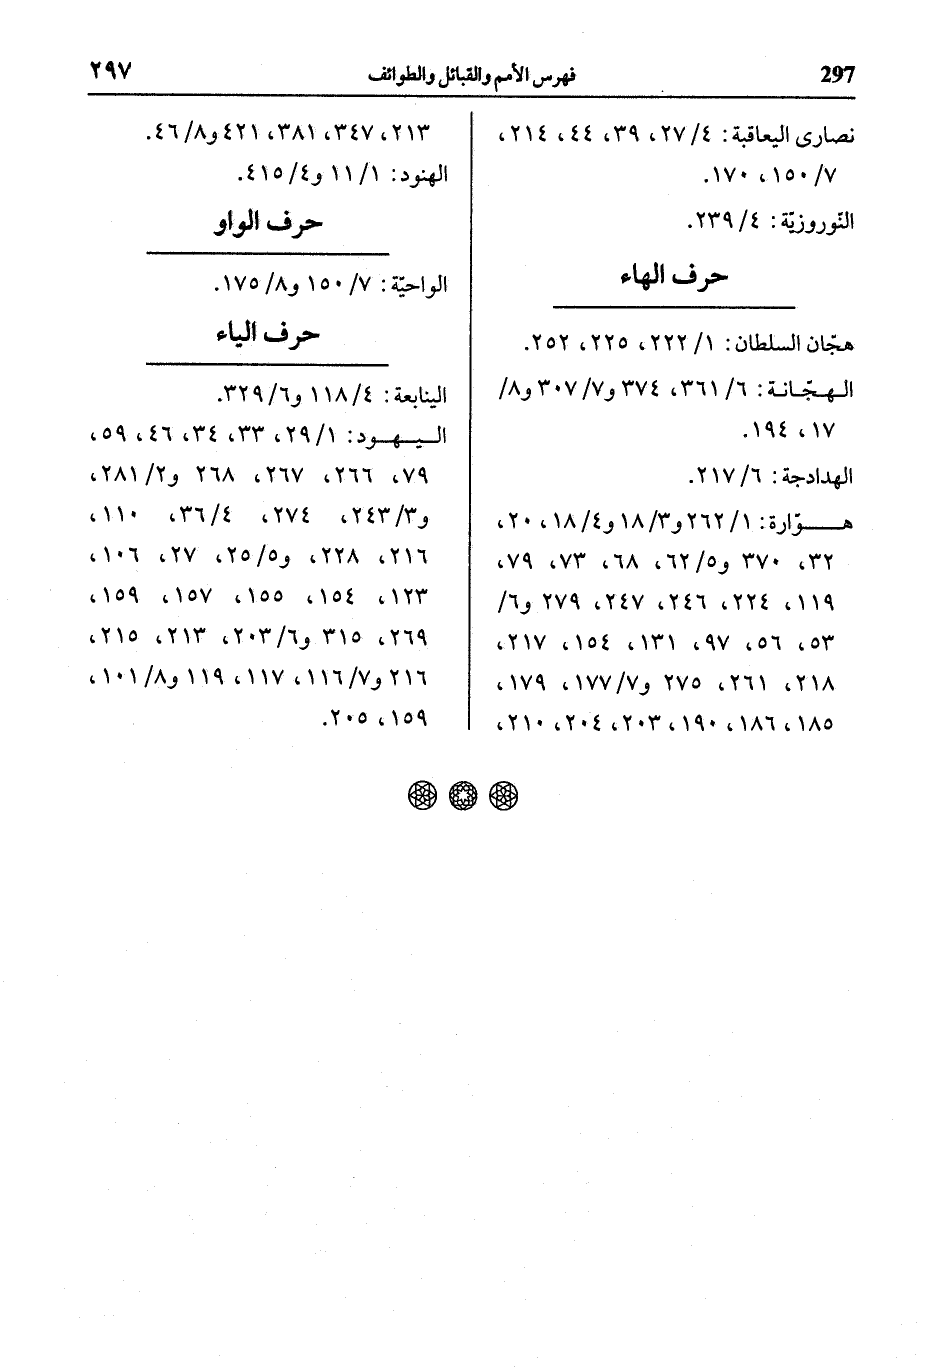 297 فهرس الأمم والقبائل والطوائف ٢٩٧
نصارى اليعاقبة: ٤/ ٢٧، ٣٩، ٤٤، ٢١٤،
٧/ ١٥٠، ١٧٠.
النّوروزيّة: ٤/ ٢٣٩.
حرف الهاء
هجّان السلطان: ١/ ٢٢٢، ٢٢٥، ٢٥٢.
الهجّانة: ٦/ ٣٦١، ٣٧٤ و٧/ ٣٠٧ و٨/
١٧، ١٩٤.
الهدادجة: ٦/ ٢١٧.
هوّارة: ١/ ٢٦٢ و٣/ ١٨ و٤/ ١٨، ٢٠،
٣٢، ٣٧٠ و٥/ ٦٢، ٦٨، ٧٣، ٧٩،
١١٩، ٢٢٤، ٢٤٦، ٢٤٧، ٢٧٩ و٦/
٥٣، ٥٦، ٩٧، ١٣١، ١٥٤، ٢١٧،
٢١٨، ٢٦١، ٢٧٥ و٧/ ١٧٧، ١٧٩،
١٨٥، ١٨٦، ١٩٠، ٢٠٣، ٢٠٤، ٢١٠،
٢١٣، ٣٤٧، ٣٨١، ٤٢١ و٨/ ٤٦.
الهنود: ١/ ١١ و٤/ ٤١٥.
حرف الواو
الواحيّة: ٧/ ١٥٠ و٨/ ١٧٥.
حرف الياء
الينابعة: ٤/ ١١٨ و٦/ ٣٢٩.
اليهود: ١/ ٢٩، ٣٣، ٣٤، ٤٦، ٥٩،
٧٩، ٢٦٦، ٢٦٧، ٢٦٨ و٢/ ٢٨١،
و٣/ ٢٤٣، ٢٧٤، ٤/ ٣٦، ١١٠،
٢١٦، ٢٢٨، و٥/ ٢٥، ٢٧، ١٠٦،
١٢٣، ١٥٤، ١٥٥، ١٥٧، ١٥٩،
٢٦٩، ٣١٥ و٦/ ٢٠٣، ٢١٣، ٢١٥،
٢١٦ و٧/ ١١٦، ١١٧، ١١٩ و٨/ ١٠١،
١٥٩، ٢٠٥.